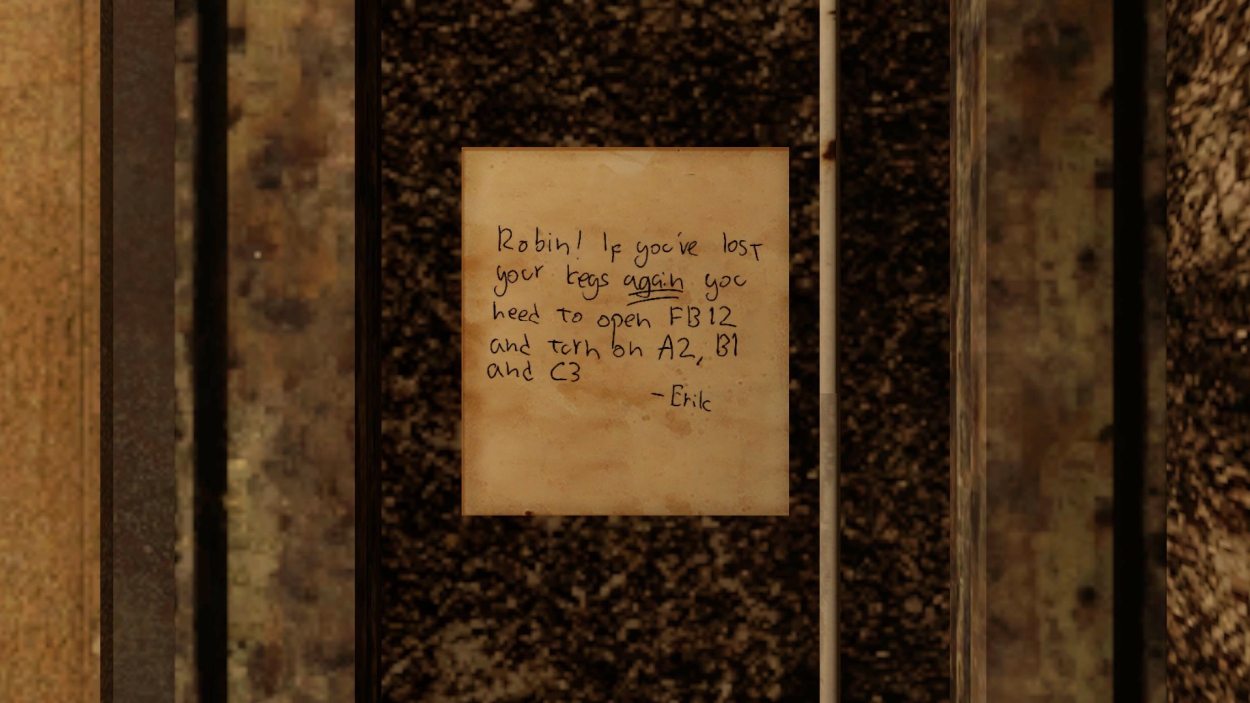 Robin! If you've lost
your keys again you
need to open FB12
and turn on A2, B1
and C3
- Erik